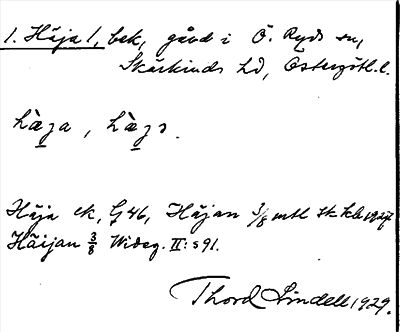 1. Häja l, bek, gård i Ö. Ryds sn,
Skärkinds hd, Östergötl. l.
hæ̀ʒa, hæ̀ʒɔ.
Häja ek, G 46, Häjan 3/8 mtl sk kb 1927
Häijan 3/8 Wideg. II: s 91.
Thord Lindell 1929.